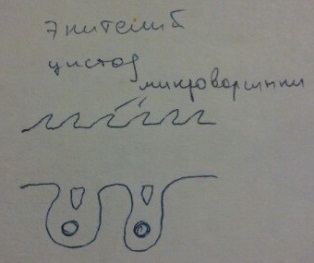 Эпителий
цистод
микроворсинки